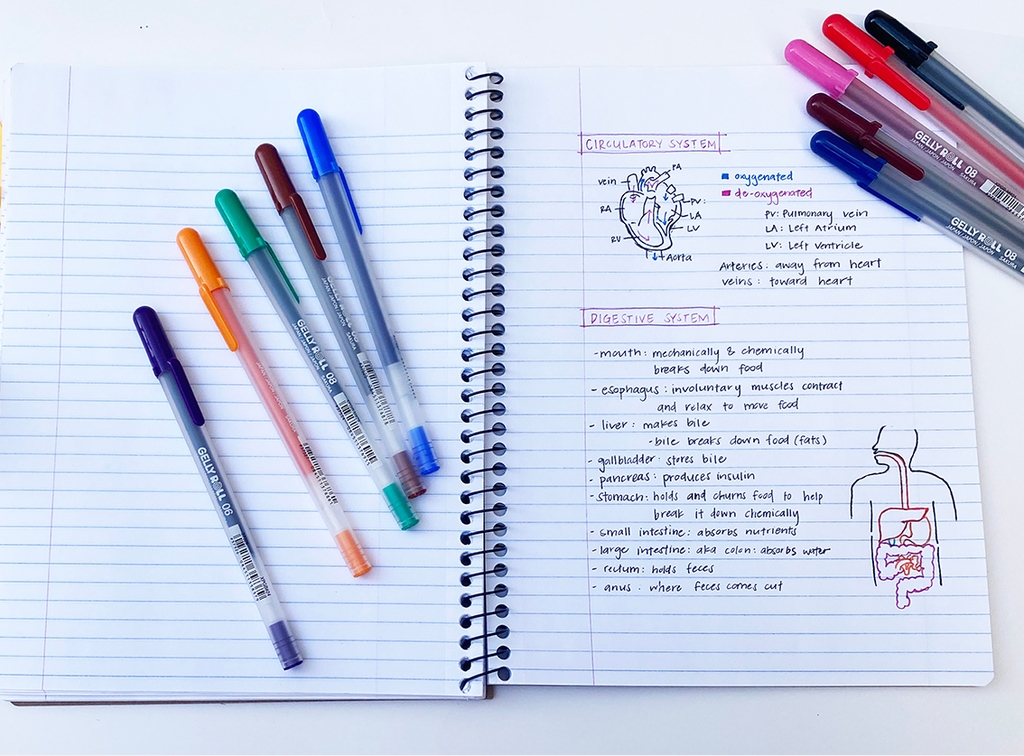 CIRCULATORY SYSTEM
PA
vein
RA
RV
PV:
LA
LV
Aorta
oxygenated
de-oxygenated
PV: Pulmonary vein
LA: Left Atrium
LV: Left Ventricle
Arteries: away from heart
veins: toward heart
DIGESTIVE SYSTEM
-mouth: mechanically & chemically
breaks down food
- esophagus: involuntary muscles contract
and relax to move food
- liver: makes bile
-bile breaks down food (fats)
- gallbladder: stores bile
- pancreas: produces insulin
-stomach: holds and churns food to help
break it down chemically
- small intestine: absorbs nutrients
- large intestine: aka colon: absorbs water
- rectum: holds feces
- anus: where feces comes out
GELLY ROLL 06
JAPAN/JAPON/JAPON SAKURA
GELLY ROLL 08
JAPAN/JAPON/JAPON SAKURA
GELLY ROLL 08
JAPAN/JAPON/JAPON SAKURA
GELLY ROLL 08
JAPAN/JAPON/JAPON SAKURA